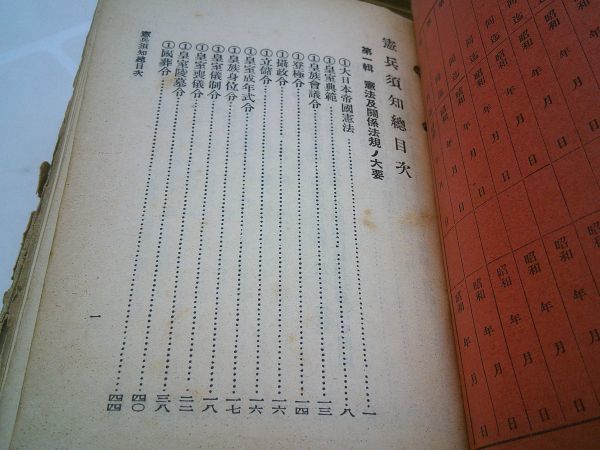 昭和 年 月 日
昭和 年 月 日
昭和 年 月 日
昭和 年 月 日
昭和 年 月 日
憲兵須知總目次
第一輯 憲法及關係法規ノ大要
①大日本帝國憲法……一
①皇室典範……八
①皇族會議令……一三
①登極令……一四
①攝政令……一六
①立儲令……一六
①皇室成年式令……一七
①皇族身位令……一八
①皇室儀制令……二二
①皇室喪儀令……三八
①皇室陵墓令……四〇
①國葬令……四四
憲兵須知總目次
一